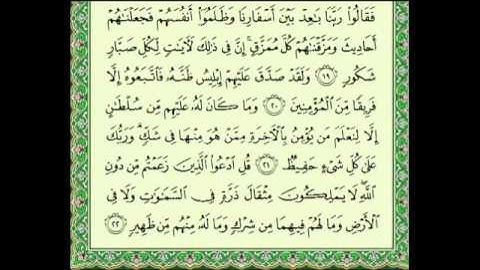 فَقَالُوا۟ رَبَّنَا بَـٰعِدْ بَيْنَ أَسْفَارِنَا وَظَلَمُوٓا۟ أَنفُسَهُمْ فَجَعَلْنَـٰهُمْ
أَحَادِيثَ وَمَزَّقْنَـٰهُمْ كُلَّ مُمَزَّقٍ ۚ إِنَّ فِى ذَٰلِكَ لَـَٔايَـٰتٍ لِّكُلِّ صَبَّارٍ
شَكُورٍ ١٩ وَلَقَدْ صَدَّقَ عَلَيْهِمْ إِبْلِيسُ ظَنَّهُۥ فَٱتَّبَعُوهُ إِلَّا
فَرِيقًا مِّنَ ٱلْمُؤْمِنِينَ ٢٠ وَمَا كَانَ لَهُۥ عَلَيْهِم مِّن سُلْطَـٰنٍ
إِلَّا لِنَعْلَمَ مَن يُؤْمِنُ بِٱلْـَٔاخِرَةِ مِمَّنْ هُوَ مِنْهَا فِى شَكٍّ ۗ وَرَبُّكَ
عَلَىٰ كُلِّ شَىْءٍ حَفِيظٌ ٢١ قُلِ ٱدْعُوا۟ ٱلَّذِينَ زَعَمْتُم مِّن دُونِ
ٱللَّهِ ۖ لَا يَمْلِكُونَ مِثْقَالَ ذَرَّةٍ فِى ٱلسَّمَـٰوَٰتِ وَلَا فِى
ٱلْأَرْضِ وَمَا لَهُمْ فِيهِمَا مِن شِرْكٍ وَمَا لَهُۥ مِنْهُم مِّن ظَهِيرٍ ٢٢